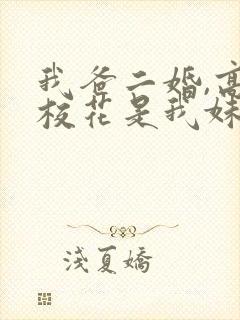 我爸二婚,高
校花是我妹
浅夏娇